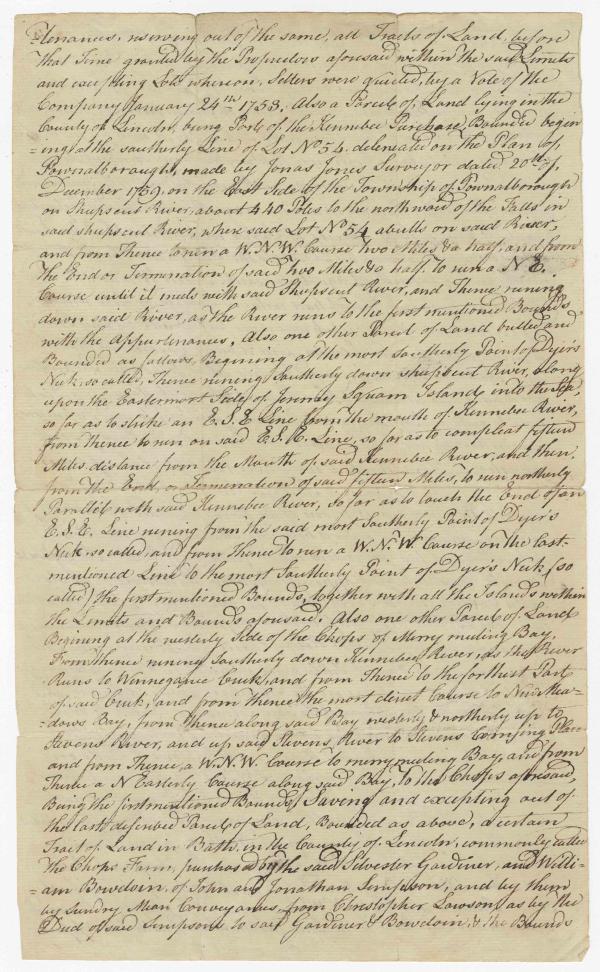 -tenances, reserving out of the same, all Tracts of Land, before
that Time granted by the Proprietors aforesaid within the said Limits
and excepting Lots whereon Setlers were quieted, by a Vote of the
Company January 24th 1753, Also a Parcel of Land lying in the
County of Lincoln, being Part of the Kennebec Purchase, Bounded begin
-ing at the southerly Line of Lot No 54, delineated on the Plan of
Pownalborough, made by Jonas Jones Surveyor dated 20th of
December 1759, on the East Side of the Township of Pownalborough
on Shepscut River, about 440 Poles to the northward of the Falls in
said shepscut River, where said Lot No 54 abutts on said River,
and from Thence to run a W.N.W. Course two Miles & a half, and from
the End or Termination of said two Miles & a half to run a N.E.
Course until it meets with said Shepscut River, and Thence runing
down said River, as the River runs to the first mentioned Bounds
with the appurtenances, Also one other Parcel of Land butted and
Bounded as follows, Begining at the most Southerly Point of Dyer's
Neck, so called, Thence runing Southerly down shepscut River, along
upon the Eastermost Side of Jeremy Squam Island, into the Sea,
so far as to strike an E.S.E Line from the mouth of Kennebec River,
from thence to run on said E.S.E. Line, so far as to compleat fifteen
Miles distance from the Mouth of said Kennebec River, and then
from the End or Termination of said fifteen Miles, to run northerly
Parallel with said Kennebec River, so far as to touch the End of an
E.S.E. Line runing from the said most Southerly Point of Dyer's
Neck, so called, and from thence to run a W.N.W. Course on the last-
mentioned Line to the most Southerly Point of Dyer's Neck (so
called) the first mentioned Bounds, together with all the Islands within
the Limits and Bounds aforesaid. Also one other Parcel of Land
Begining at the westerly Side of the Chops of Merry meeting Bay,
From thence runing Southerly down Kennebec River, as the River
Runs to Winnegance Creek, and from Thence to the farthest Part
of said Creek, and from thence the most direct Course to Mea-
-dows Bay, from Thence along said Bay westerly & northerly up to
Stevens River, and up said Stevens River to Stevens Carrying Place
and from Thence, a W.N.W. Course to merrymeeting Bay, and from
Thence a N Easterly Course along said Bay, to the Chops aforesaid,
Being the first mentioned Bounds, Saveing and excepting out of
the last described Parcel of Land, Bounded as above, a certain
Tract of Land in Bath, in the County of Lincoln, commonly called
The Chops Farm, purchased by the said Silvester Gardiner, and Willi-
-am Bowdoin, of John and Jonathan Simpson, and by them
by Sundry Mean Conveyances, from Christopher Lawson, as by the
Deed of said Simpsons to said Gardiner & Bowdoin, & the Bounds